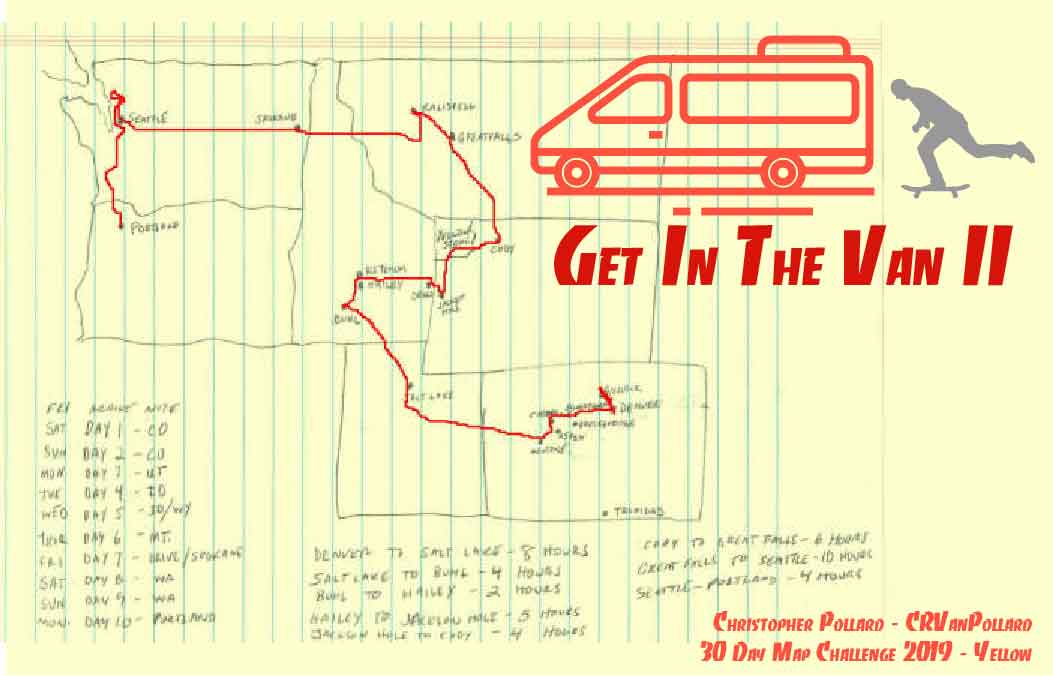 GET IN THE VAN II
SEATTLE
SPOKANE
KALISPELL
GREAT FALLS
PORTLAND
CODY
KETCHUM
HAILEY
JACKSON HOLE
BUHL
SALT LAKE
BOULDER
DENVER
BRECKENRIDGE
ASPEN
TRINIDAD
FRI ARRIVE NITE
SAT DAY 1 - CO
SUN DAY 2 - CO
MON DAY 3 - UT
TUE DAY 4 - ID
WED DAY 5 - ID/WY
THUR DAY 6 - MT.
FRI DAY 7 - DRIVE/SPOKANE
SAT DAY 8 - WA
SUN DAY 9 - WA
MON DAY 10 - PORTLAND
DENVER TO SALT LAKE - 8 HOURS
SALT LAKE TO BUHL - 4 HOURS
BUHL TO HAILEY - 2 HOURS
HAILEY TO JACKSON HOLE - 5 HOURS
JACKSON HOLE TO CODY - 4 HOURS
CODY TO GREAT FALLS - 6 HOURS
GREAT FALLS TO SEATTLE - 10 HOURS
SEATTLE - PORTLAND - 4 HOURS
CHRISTOPHER POLLARD - CRVANPOLLARD
30 DAY MAP CHALLENGE 2019 - YELLOW